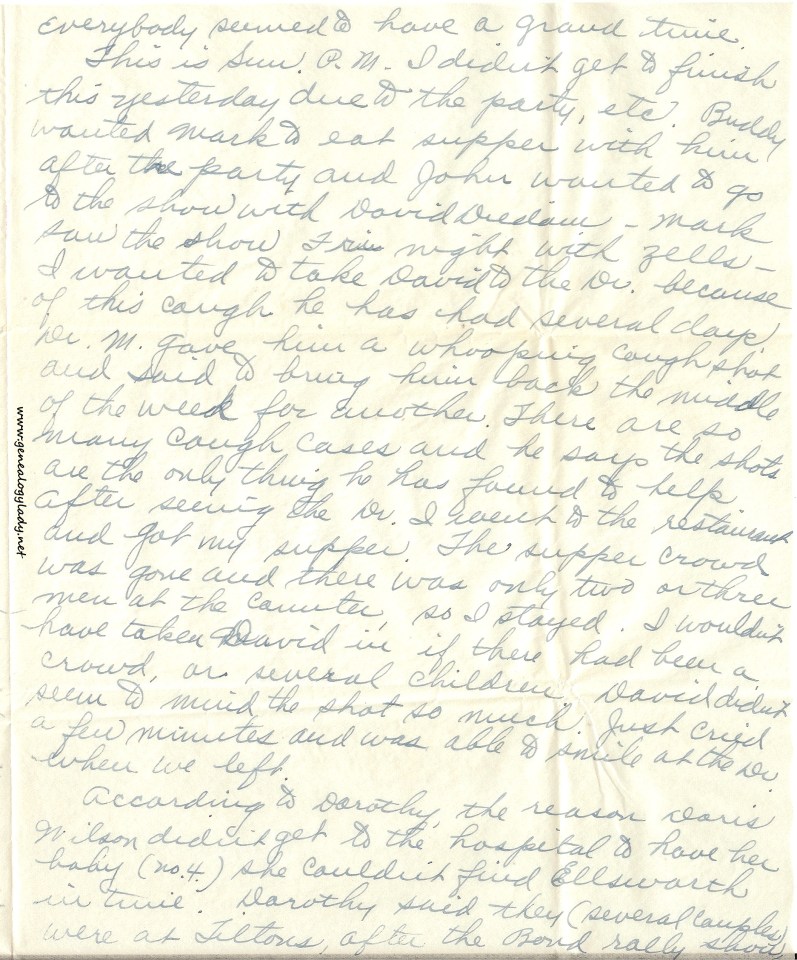 everybody seemed to have a grand time.
This is Sun. P.M. I didn't get to finish
this yesterday due to the party, etc. Buddy
wanted Mark to eat supper with him
after the party and John wanted to go
to the show with David - Mark
saw the show Fri. night with Zells -
I wanted to take David to the Dr. because
of this cough he has had several days
Dr. M. gave him a whooping cough shot
and said to bring him back the middle
of the week for another. There are so
many cough cases and he says the shots
are the only thing he has found to help
after seeing the Dr. I went to the restaurant
and got my supper. The supper crowd
was gone and there was only two or three
men at the counter, so I stayed. I wouldn't
have taken David in if there had been a
crowd, or several children. David didn't
seem to mind the shot so much. Just cried
a few minutes and was able to smile at the Dr.
when we left.
According to Dorothy, the reason Doris
Wilson didn't get to the hospital to have her
baby (no. 4.) she couldn't find Ellsworth
in time. Dorothy said they (several couples)
were at Tiltons, after the Bond rally show,
www.genealogylady.net